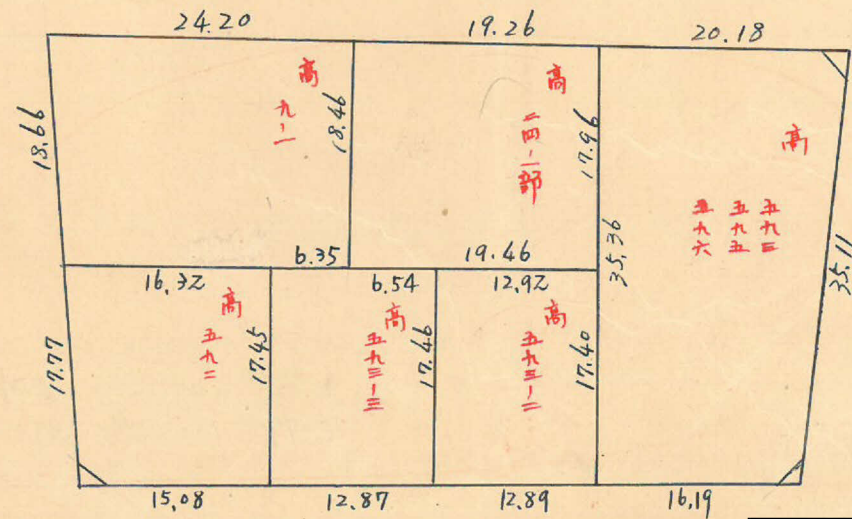 24.20 19.26 20.18
18.66
高
九-一
18.46
高
二四-一部
17.96
高
五九三
五九五
五九六
35.36
35.11
6.35 19.46
16.32 6.54 12.92
17.77
高
五九二
17.45
高
五九三-三
17.46
高
五九三-二
17.40
15.08 12.87 12.89 16.19